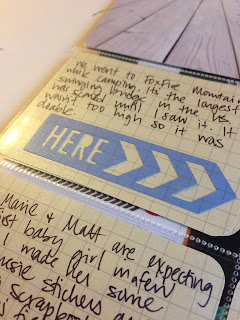 we went to Foxfire Mountain
while camping. It's the longest
swinging bridge in the US.
was scared until I saw it. It
wasn't too high so it was
doable.
HERE
Marie & Matt are expecting
baby girl in a few
I made her some
music stickers
scrapbook